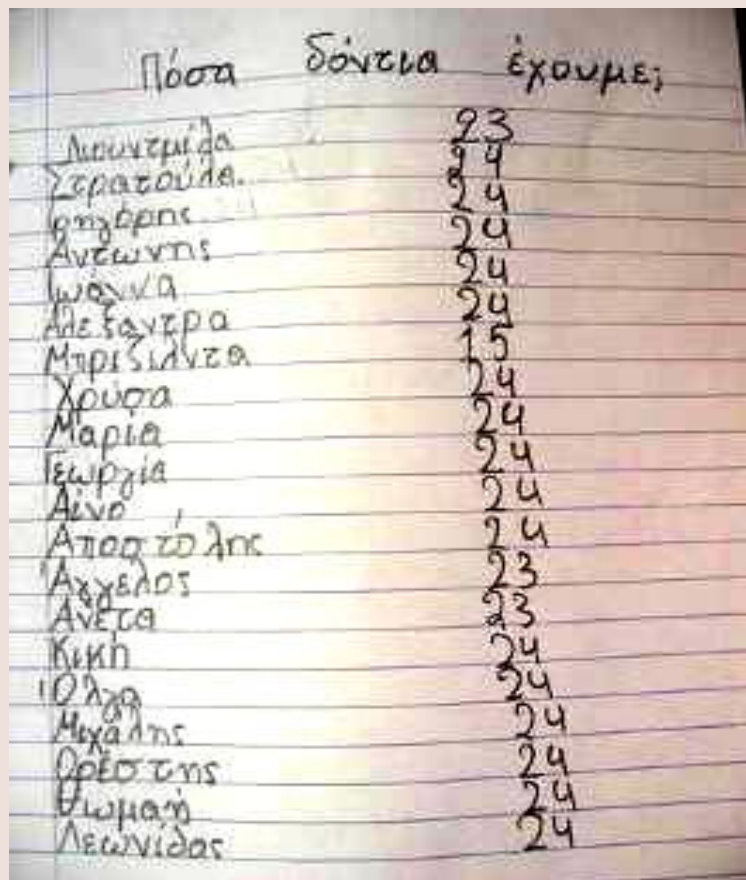 Πόσα δόντια έχουμε;
Λιουντμίλα 23
Στρατούλα 24
Γρηγόρης 24
Αντώνης 24
Ιωάννα 24
Αλεξαντρα 24
Μπριζιλντα 15
Χρύσα 24
Μαρία 24
Γεωργία 24
Αίνο 24
Αποστόλης 24
Άγγελος 23
Ανέτα 23
Κική 24
Όλγα 24
Μιχάλης 24
Ορέστης 24
Θωμαή 24
Λεωνίδας 24